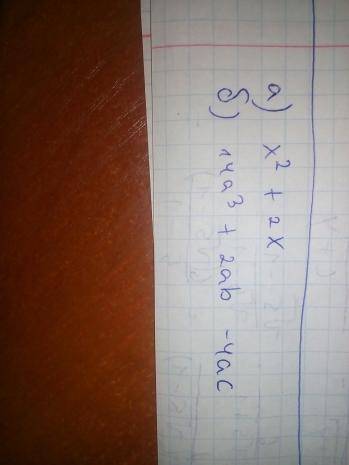 а) x² + 2x
б) 14a³ + 2ab - 4ac